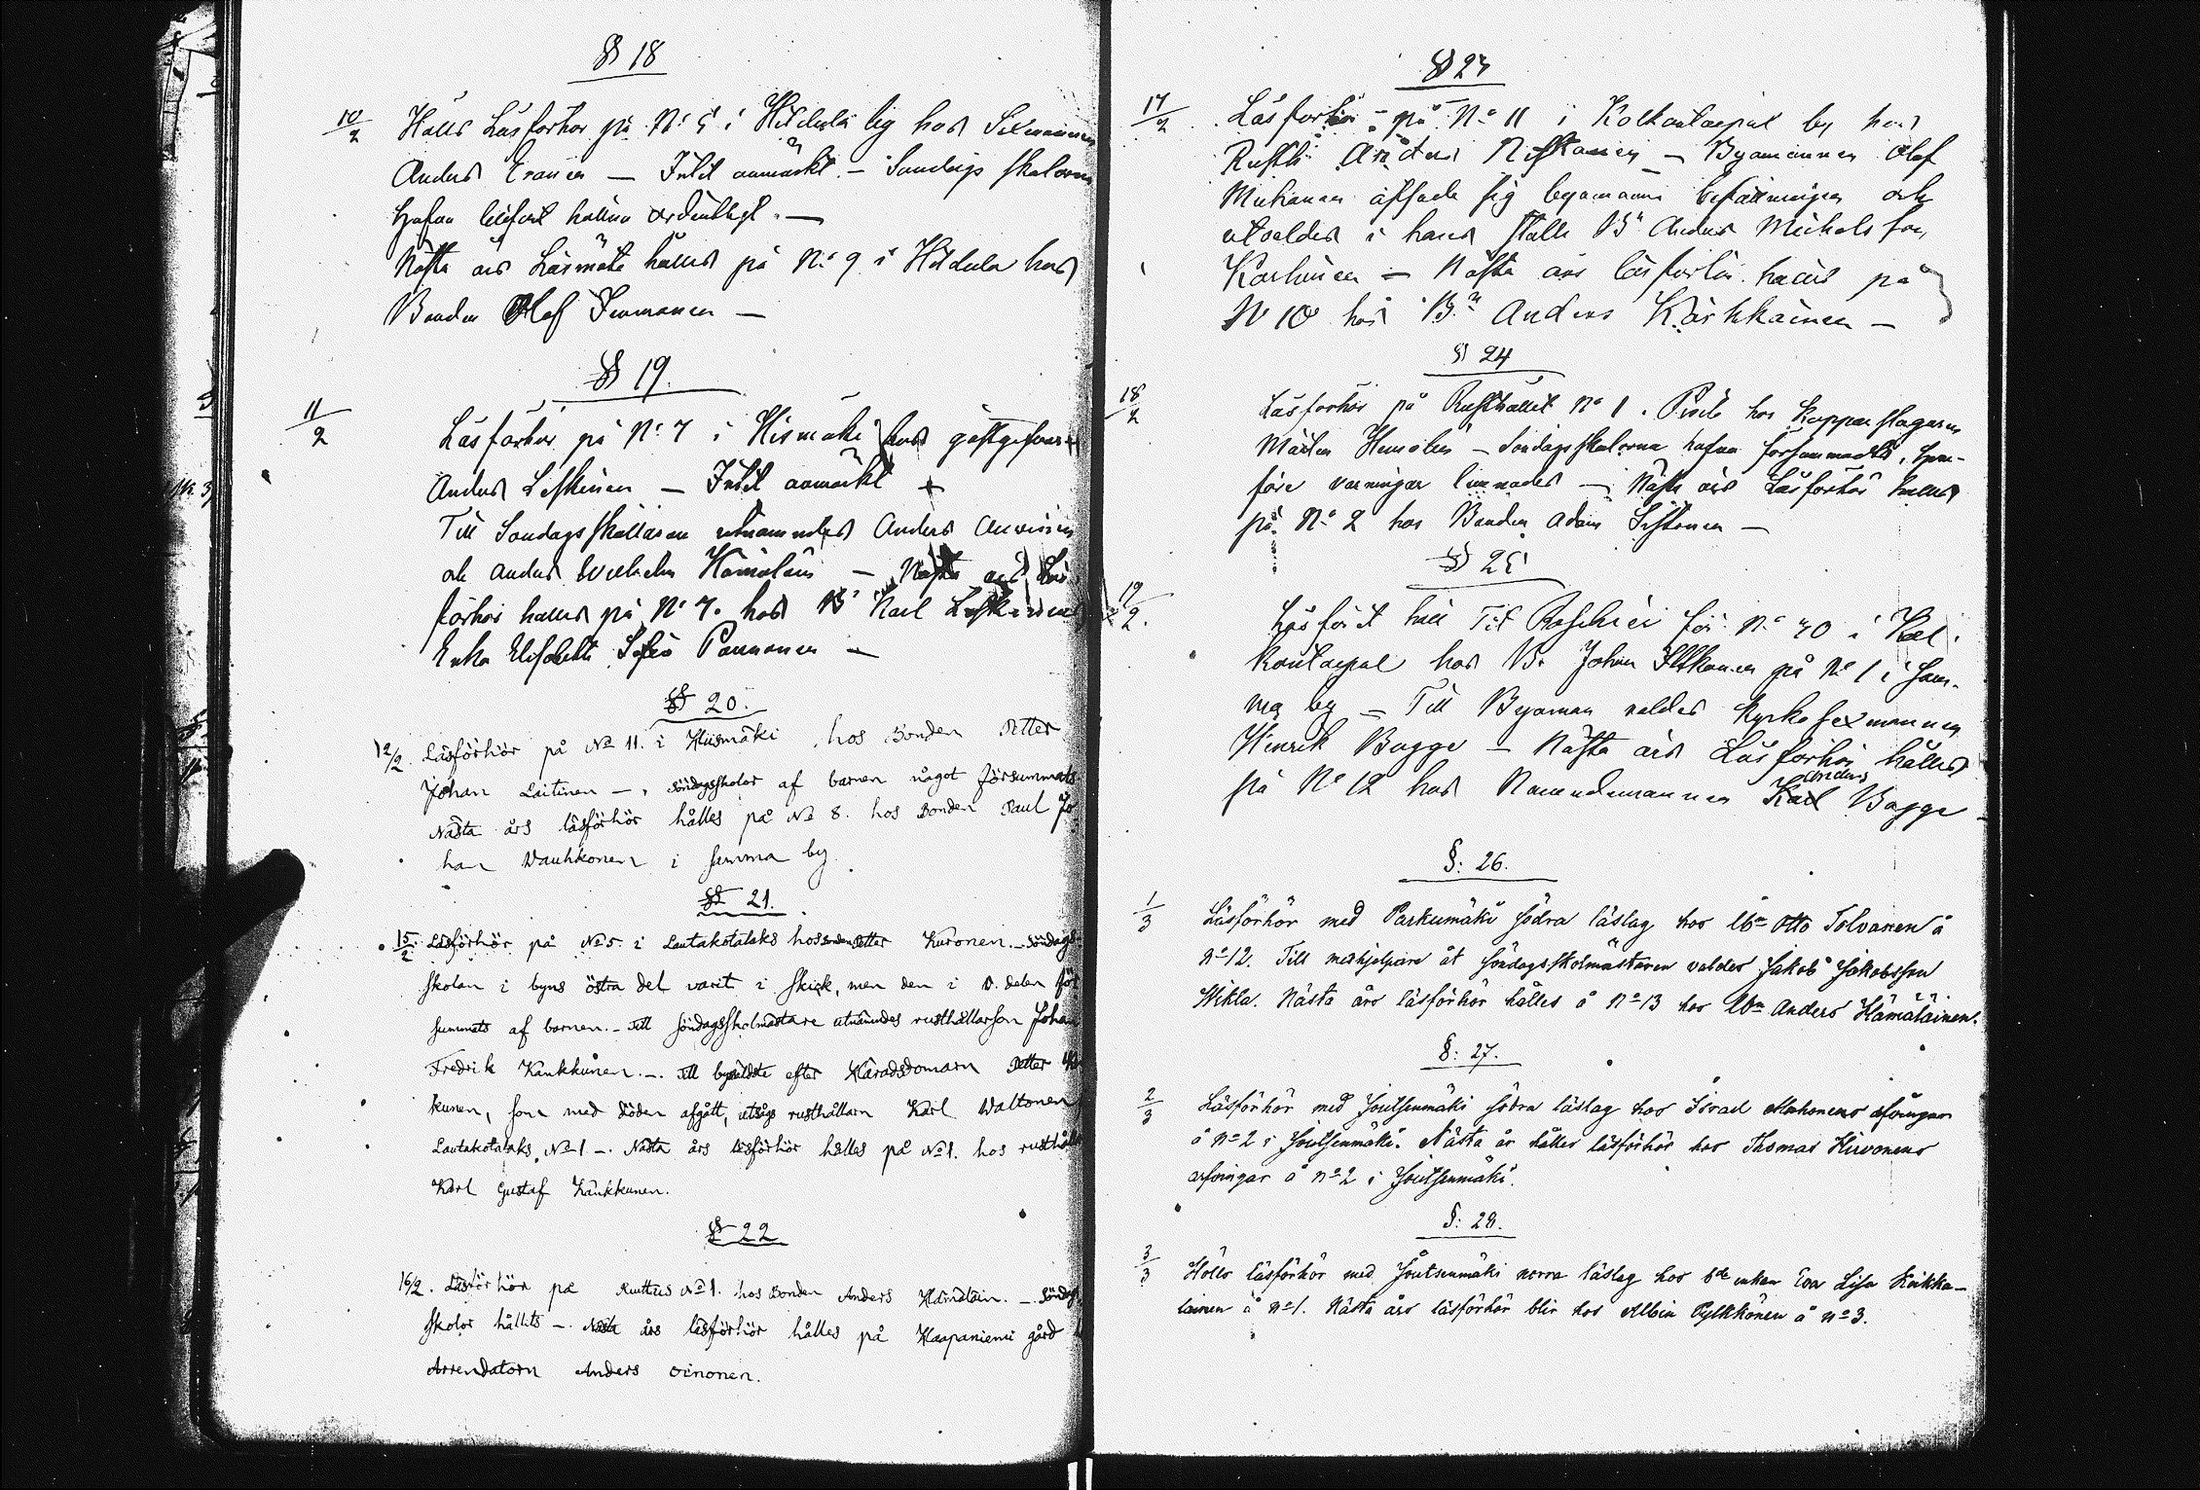 § 18
10/2 Hölls Läsförhör på N:o 5 i Hildula by hos Sexmannen
Anders Eronen — Intet anmärkt. — Söndags skolorna
hafva blifvit hållna ordentligt. —
Nästa års Läsmöte hålles på N:o 9 i Hildula hos
Bonden Olof Immonen —
§ 19.
11/2 Läsförhör på N:o 7 i Hismäki hos gästgifvaren
Anders Leskinen — Intet anmärkt
Till Söndagsskollärare utnämndes Anders Auvinen
och Anders Wilhelm Hämäläin — Nästa års Läs
förhör hålles på N:o 7. hos B. Karl Leskinens
Enka Elisabeth Sofia Parmanen —
§ 20.
12/2. Läsförhör på No 11. i Hiismäki, hos Bonden Petter
Johan Laitinen —, söndagsskolor af barnen något försummats
Nästa års läsförhör hålles på No 8. hos Bonden Paul Jo-
han Wauhkonen i samma by.
§ 21.
15/2. Läsförhör på No 5. i Lautakotalaks hos Bonden Petter Kuronen. — Söndags
skolan i byns östra del varit i skick, men den i v. delen för
summats af barnen. — Till söndagsskolmästare utnämndes rusthållarson Johan
Fredrik Kankkunen. —. Till byäldste efter Häradsdomarn Petter
kunen, som med döden afgått, utsågs rusthållarn Karl Waltonen
Lautakotalaks No 1 —. Nästa års läsförhör hålles på No 1. hos rusthåll
Karl Gustaf Kankkunen.
§ 22
16/2. Läsförhör på Ruuttus No 1. hos Bonden Anders Hämäläin. — Söndags
skolor hållits —. Nästa års läsförhör hålles på Haapaniemi gård
Arrendatorn Anders Oinonen.
§ 23
17/2 Läsförhör på N:o 11 i Kolkontaipal by hos
Rusth. Anders Nissanen — Byamannen Olof
Muhonen afsade sig byamanns befattningen och
utvaldes i hans ställe B:n Anders Michelsson
Karhinen — Nästa års läsförhör hålles på
N 10 hos B:n Anders Kärkkäinen —
§ 24
18/2 Läsförhör på Rusthållet N:o 1. hos Kopparslagaren
Mårten Hemolin — Söndagsskolorna hafva försummats, hvar-
före varningar lemnades — Nästa års Läsförhör hålles
på N:o 2 hos Bonden Adam Sistonen —
§ 25
19/2. Läsför:t till för N:o 40 i Kol-
kontaipal hos B. Johan på N:o 1 i sam-
ma by — Till Byaman valdes Kyrkosexmannen
Henrik Bagge — Nästa års Läsförhör hålles
på N:o 12 hos Nämndemannen Karl Bagge
Anders
§: 26.
1/3 Läsförhör med Parkumäki södra läslag hos Bn Otto Tolvanen å
No 12. Till medhjelpare åt söndagsskolmästaren valdes Jakob Jakobsson
Wikla. Nästa års läsförhör hålles å No 13 hos Bn Anders Hämäläinen.
§: 27.
2/3 Läsförhör med Joutsenmäki södra läslag hos Israel Muhonens arfvingar
å No 2 i Joutsenmäki. Nästa år hålles läsförhör hos Thomas Hirvonens
arfvingar å No 2 i Joutsenmäki.
§: 28.
3/3 Hölls läsförhör med Joutsenmäki norra läslag hos bde enkan Eva Lisa Kaikka-
lainen å No 1. Nästa års läsförhör blir hos Albin Pylkkönen å No 3.